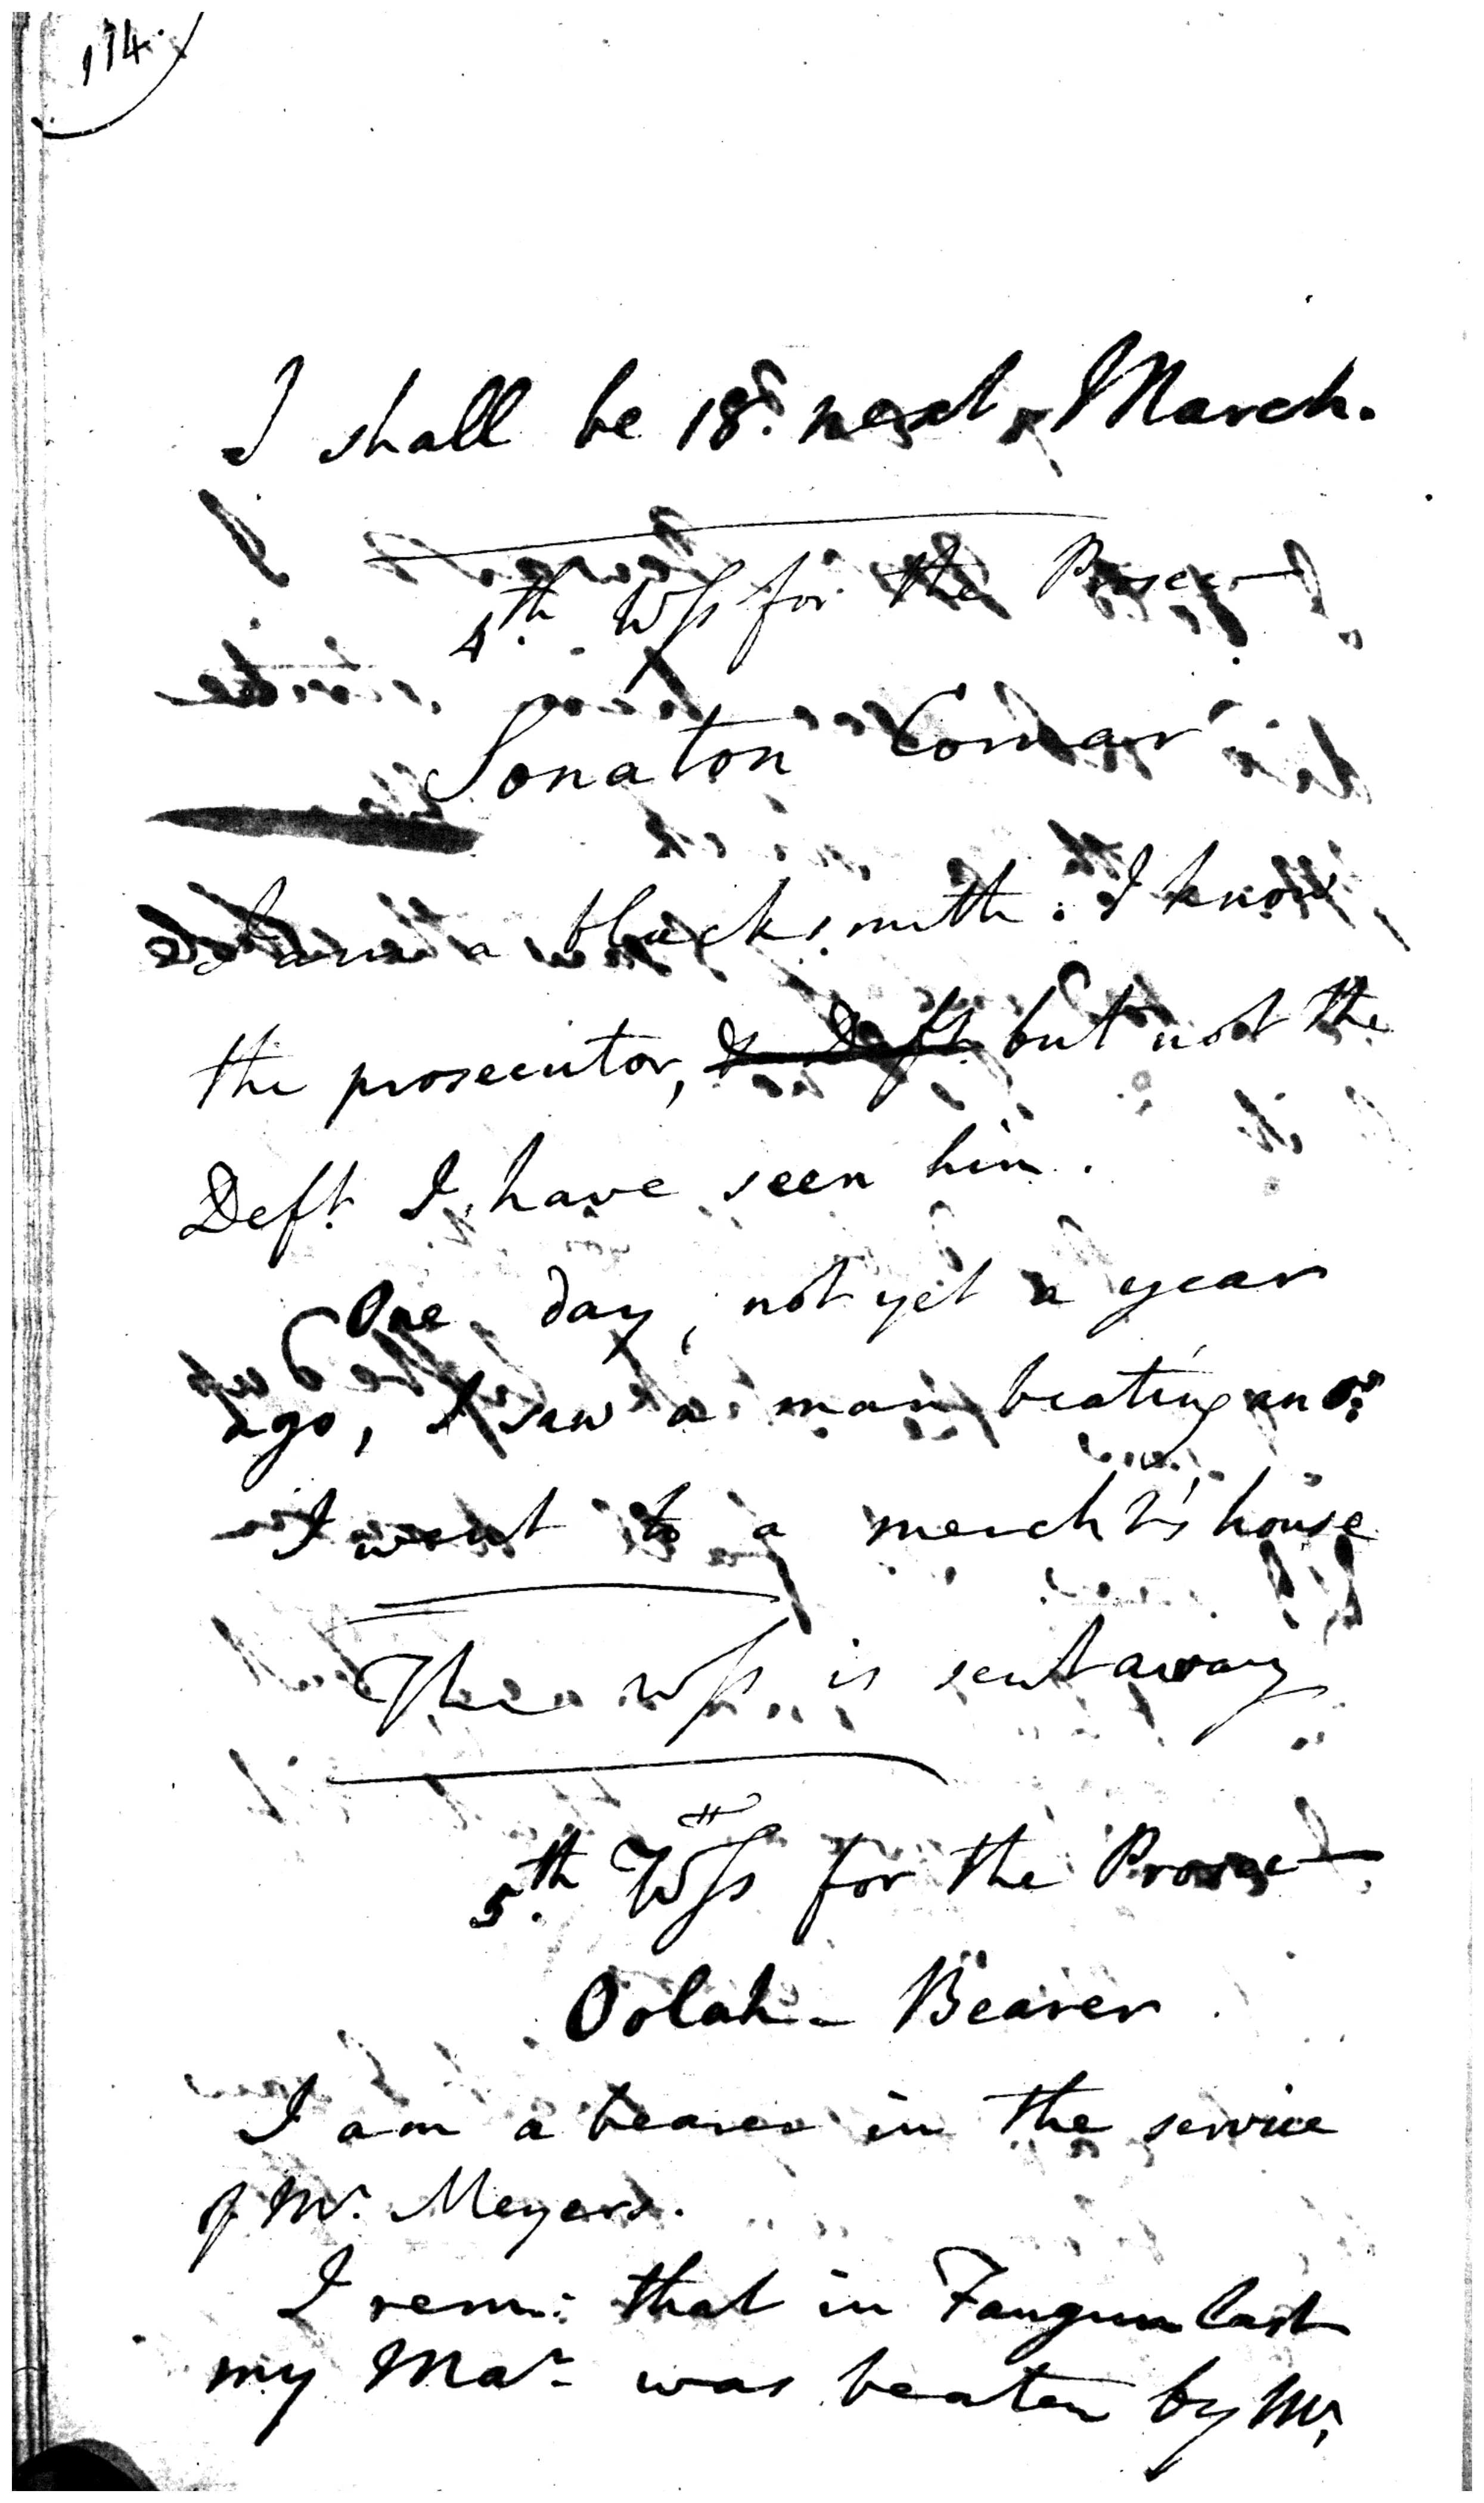 114.
I shall be 18. next March.
4.th Wss for the Prosec—
Sonaton Comar
I am a blacksmith. I know
the prosecutor, & Deft. but not the
Deft. I have seen him.
One day, not yet a year
ago, I saw a man beating anor.
I went to a mercht's house
The wss is sent away
5.th Wss for the Prosec—
Oolah - Bearer
I am a bearer in the service
of Mr. Meyers.
I rem: that in Faugun last
my Mar. was beaten by Mr.